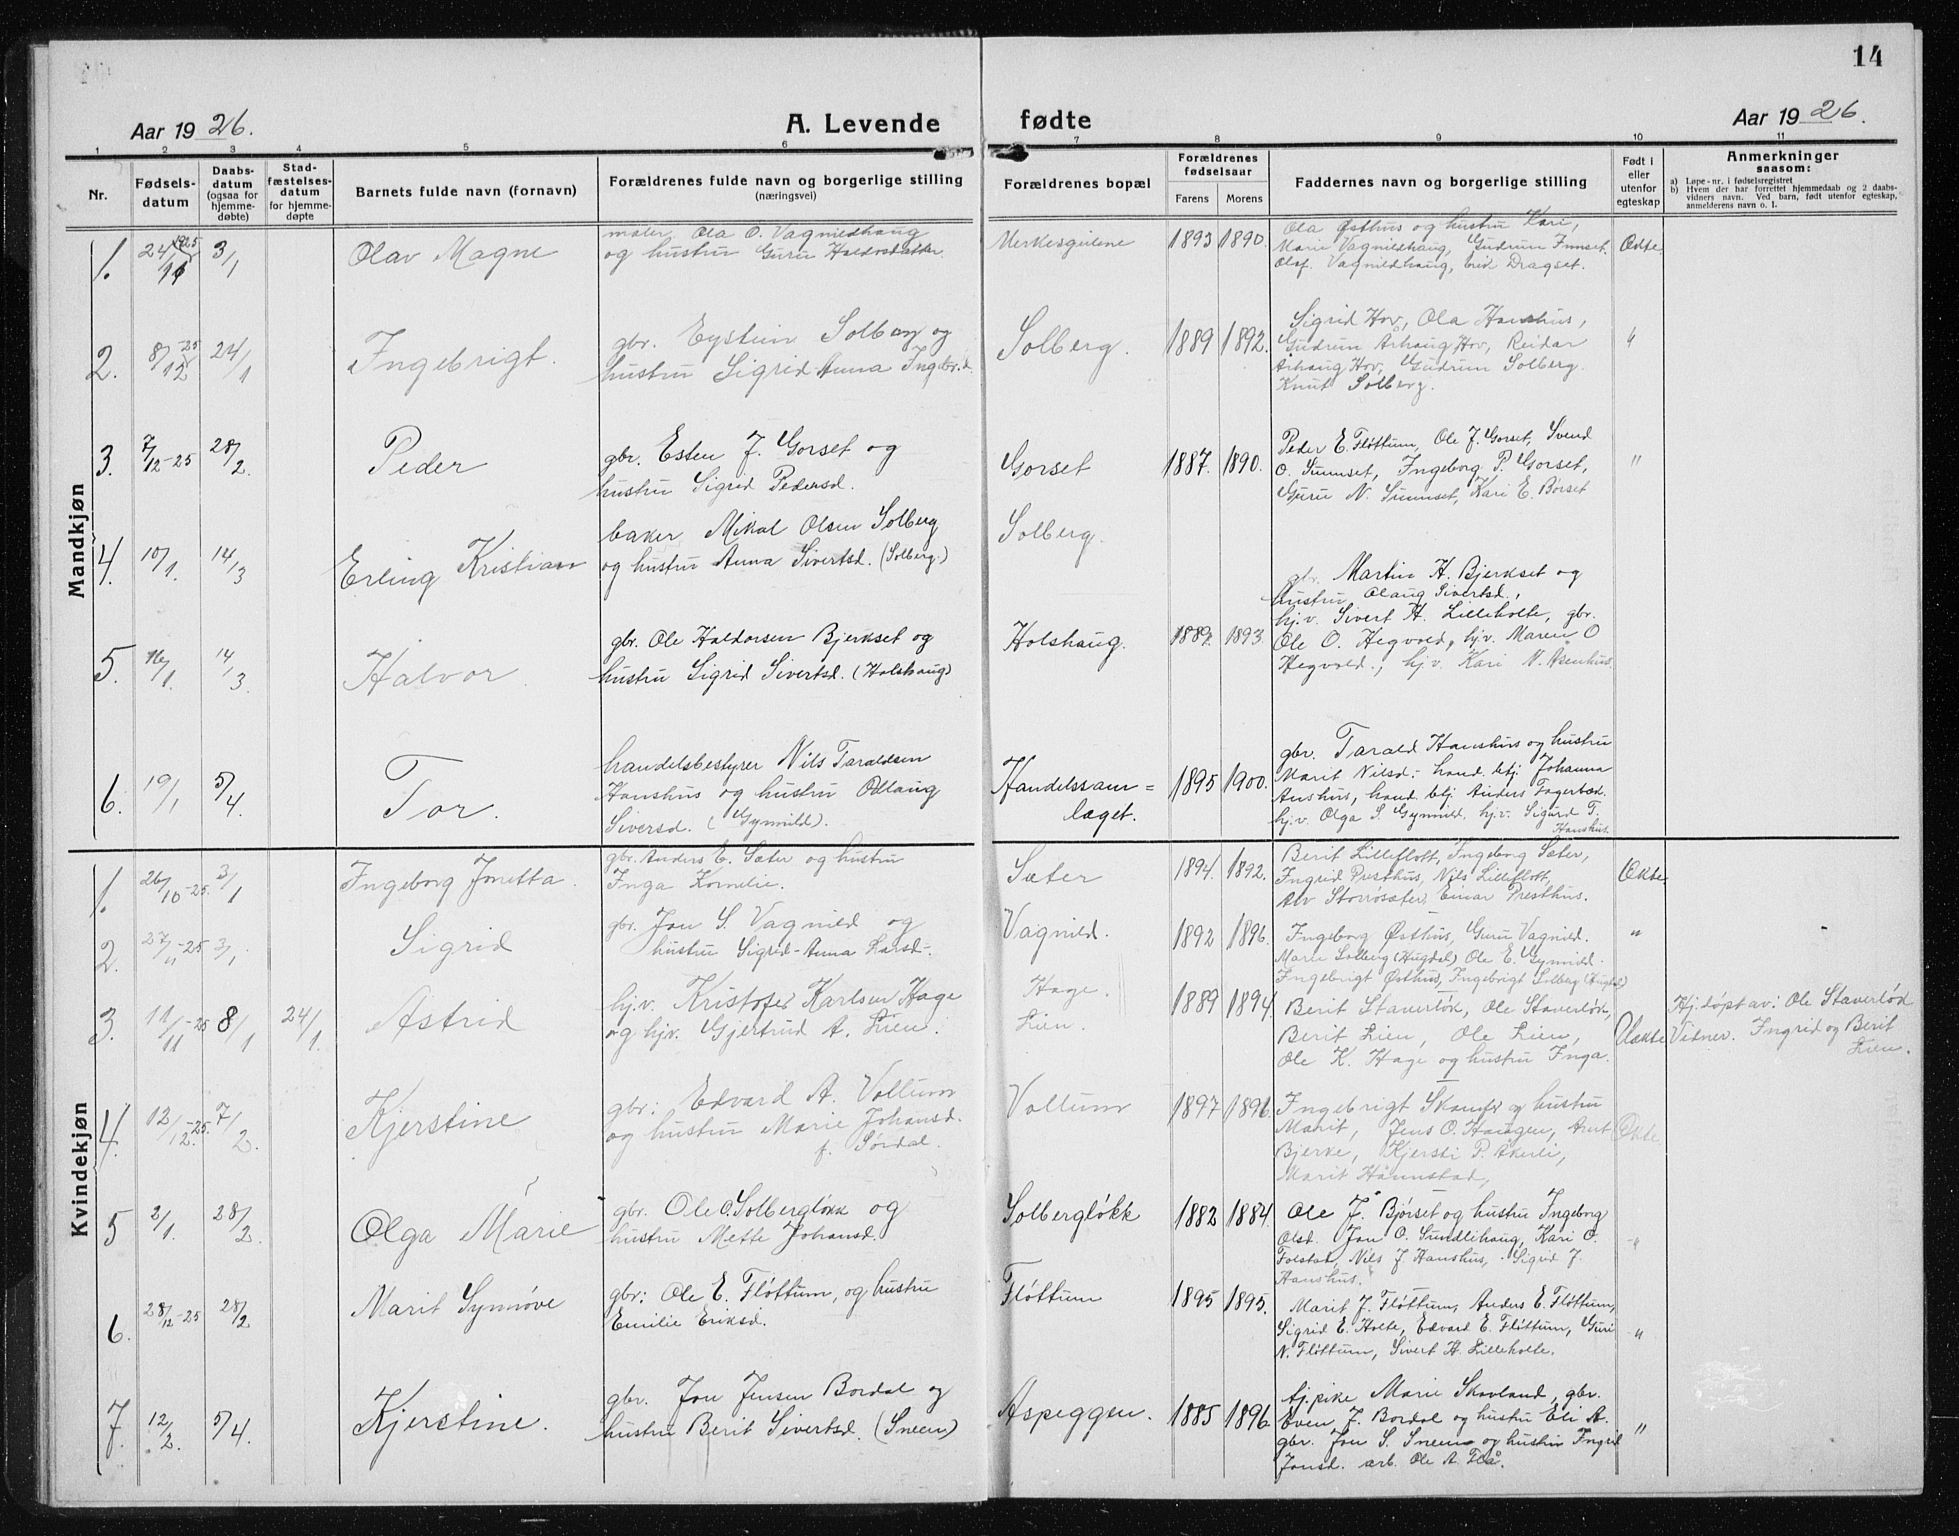 14
Aar 1926.
A. Levende fødte
Aar 1926.
1 2 3 4 5 6 7 8 9 10 11
Nr.
Fødsels-
datum
Daabs-
datum
(ogsaa for
hjemme-
døbte)
Stad-
fæstelses-
datum
for hjemme-
døpte
Barnets fulde navn (fornavn)
Forældrenes fulde navn og borgerlige stilling
(næringsvei)
Forældrenes bopæl
Forældrenes
fødselsaar
Farens
Morens
Faddernes navn og borgerlige stilling
Født i
eller
utenfor
egteskap
Anmerkninger
saasom:
a) Løpe-nr. i fødselsregistret
b) Hvem der har forrettet hjemmedaab og 2 daabs-
vidners navn. Ved barn, født utenfor egteskap,
anmelderens navn o. l.
Mandkjøn
1. 24/11 1925 3/1 Olav Magne
maler Ola O. Vagnildhaug
og hustru Guru Haldorsdatter
1893 1890.
Ola Østhus og hustru Kari,
Marie Vagnildhaug, Gudrun
Olaf Vagnildhaug, Dragset.
Ekte
2. 8/12-25 24/1 Ingebrigt.
gbr. Eystein Solberg og
hustru Sigrid Anna Ingebr.d.
Solberg. 1889 1892.
Sigrid Hov, Ola Hanshus,
Gudrun Arhaug Hov, Reidar
Arhaug Hov, Gudrun Solberg.
Knut Solberg.
"
3. 7/12-25 28/2. Peder
gbr. Esten J. Gorset og
hustru Sigrid Pedersd.
Gorset 1887. 1890.
Peder E. Fløttum, Ole J. Gorset, Svend
O. Sumset, Ingeborg P. Gorset,
Guru N. Sumset, Kari E. Børset
"
4. 10/1. 14/3 Erling Kristian
baker Mikal Olsen Solberg
og hustru Anna Sivertsd. (Solberg.)
Solberg.
5. 16/1. 14/3. Halvor.
gbr. Ole Haldorsen Bjerkset og
hustru Sigrid Sivertsd. (Holshaug)
Holshaug. 1889. 1893
gbr. Martin H. Bjerkset og
hustru Olaug Sivertsd.,
hj.v. Sivert H. Lilleholte, gbr.
Ole O. Hegvold, hj.v. Maren O
Hegvold., hj.v. Kari N. Asenhus.
6. 19/1 5/4. Tor.
handelsbestyrer Nils Taraldsen
Hanshus og hustru Odlaug
Siversd. (Gynnild).
Handelssam=
laget.
1895 1900.
gbr. Tarald Hanshus og hustru
Marit Nilsd.- hand. btj. Johanna
Aushus, hand. btj. Anders Fagerbæd.
hj.v. Olga S. Gynnild, hj.v. Sigurd T.
Hanshus.
Kvindekjøn
1. 26/10-25. 3/1 Ingeborg Jonetta.
gbr. Anders E. Sæter og hustru
Inga Kornelie.
Sæter 1894. 1892.
Berit Lilleflott, Ingeborg Sæter,
Ingrid Presthus, Nils Lilleflott,
Storrøsæter, Einar Presthus.
Ekte
2. 27/11-25 3/1. Sigrid
gbr. Jon S. Vagnild og
hustru Sigrid-Anna Larsd-.
Vagnild. 1892 1896.
Ingeborg Østhus, Guru Vagnild.
Marie Solberg (Hugdal) Ole E. Gynnild.
Ingebrigt Østhus, Ingebrigt Solberg (Hugdal)
"
3. 11/11-25 8/1 24/1. Astrid
hj.v. Kristofer Karlsen Hage
og hjv. Gjertrud A. Lien.
Hage.
Lien.
1889 1894.
Berit Staverløk, Ole Staverløk,
Berit Lien, Ole Lien,
Ole K. Hage og hustru Inga.
Uekte
Hj.døpt av: Ole Staverløk
Vidner: Ingrid og Berit
Lien.
4. 12/12-25. 7/2. Kjerstine
gbr: Edvard A. Voltum
og hustru Marie Johansd.
f. Sørdal.
Voltum 1897 1896.
Ingebrigt Skamfer og hustru
Marit, Jens O. Haugen, Arnt
Bjerke, Kjersti P. Akerli,
Marit Hamnstad,
Ekte.
5 2/1. 28/2. Olga Marie
gbr. Ole O. Solbergløkk og
hustru Mette Johansd.
Solbergløkk 1882 1884.
Ole J. Bjørset og hustru Ingeborg
Olsd. Jon O. Sundlihaug, Kari O.
Folstad, Nils J Hanshus, Sigrid J.
Hanshus.
"
6. 28/12-25 28/2. Marit Synnøve
gbr: Ole E. Fløttum, og hustru
Emilie Eriksd.
Fløttum 1895 1895.
Marit J. Fløttum, Anders E. Fløttum,
Sigrid E. Holte, Edvard E. Fløttum, Guri
N. Fløttum, Sivert H. Lilleholte.
"
7. 12/2. 5/4. Kjerstine.
gbr. Jon Jensen Bordal og
hustru Berit Sivertsd. (Sneen)
Aspeggen. 1885 1896
tj.pike Marie Skovland, gbr.
Even J. Bordal og hustru Eli A.
gbr. Jon S. Sneen og hustru Ingrid
Jonsd. arb. Ole A. Flå.
"